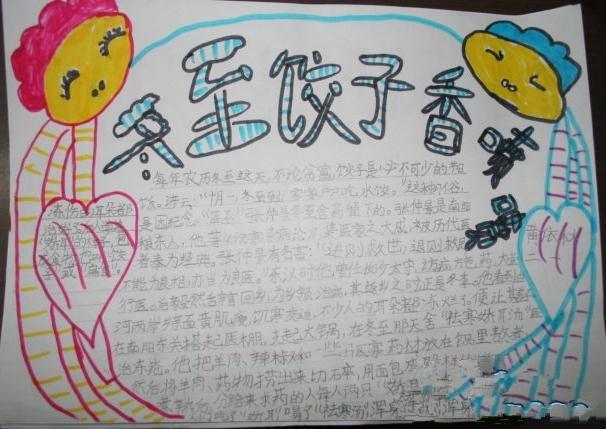 冬至饺子香喷喷
每年农历冬至这天,不论贫富,饺子是必不可少的节
饭。谚云:“十月一,冬至到,家家户户吃水饺。”这种习俗,
是因纪念“医圣”张仲景冬至舍药留下的。张仲景是南阳
稂东人,他著《伤寒杂病论》,集医家之大成,被历代医
者奉为经典。张仲景有名言:“进则救世,退则救民
不能为良相,亦当为良医。”东汉时他曾任长沙太守,访病施药,大堂
行医。后毅然辞官回乡,为乡邻治病。其返乡之时,正是冬季。他看到白
河两岸乡亲面黄肌瘦,饥寒交迫,不少人的耳朵都冻烂了。便让其弟子
在南阳东关搭起医棚,支起大锅,在冬至那天舍“祛寒娇耳汤”医
治冻疮。他把羊肉、辣椒和一些驱寒药材放在锅里熬煮,
然后将羊肉、药物捞出来切碎,用面包成耳朵样的
煮熟后,分给来求药的人每人两只“娇耳”
吃了“娇耳”,喝了“祛寒汤”,浑身
冻伤的耳朵都
治好了。
黄依
二